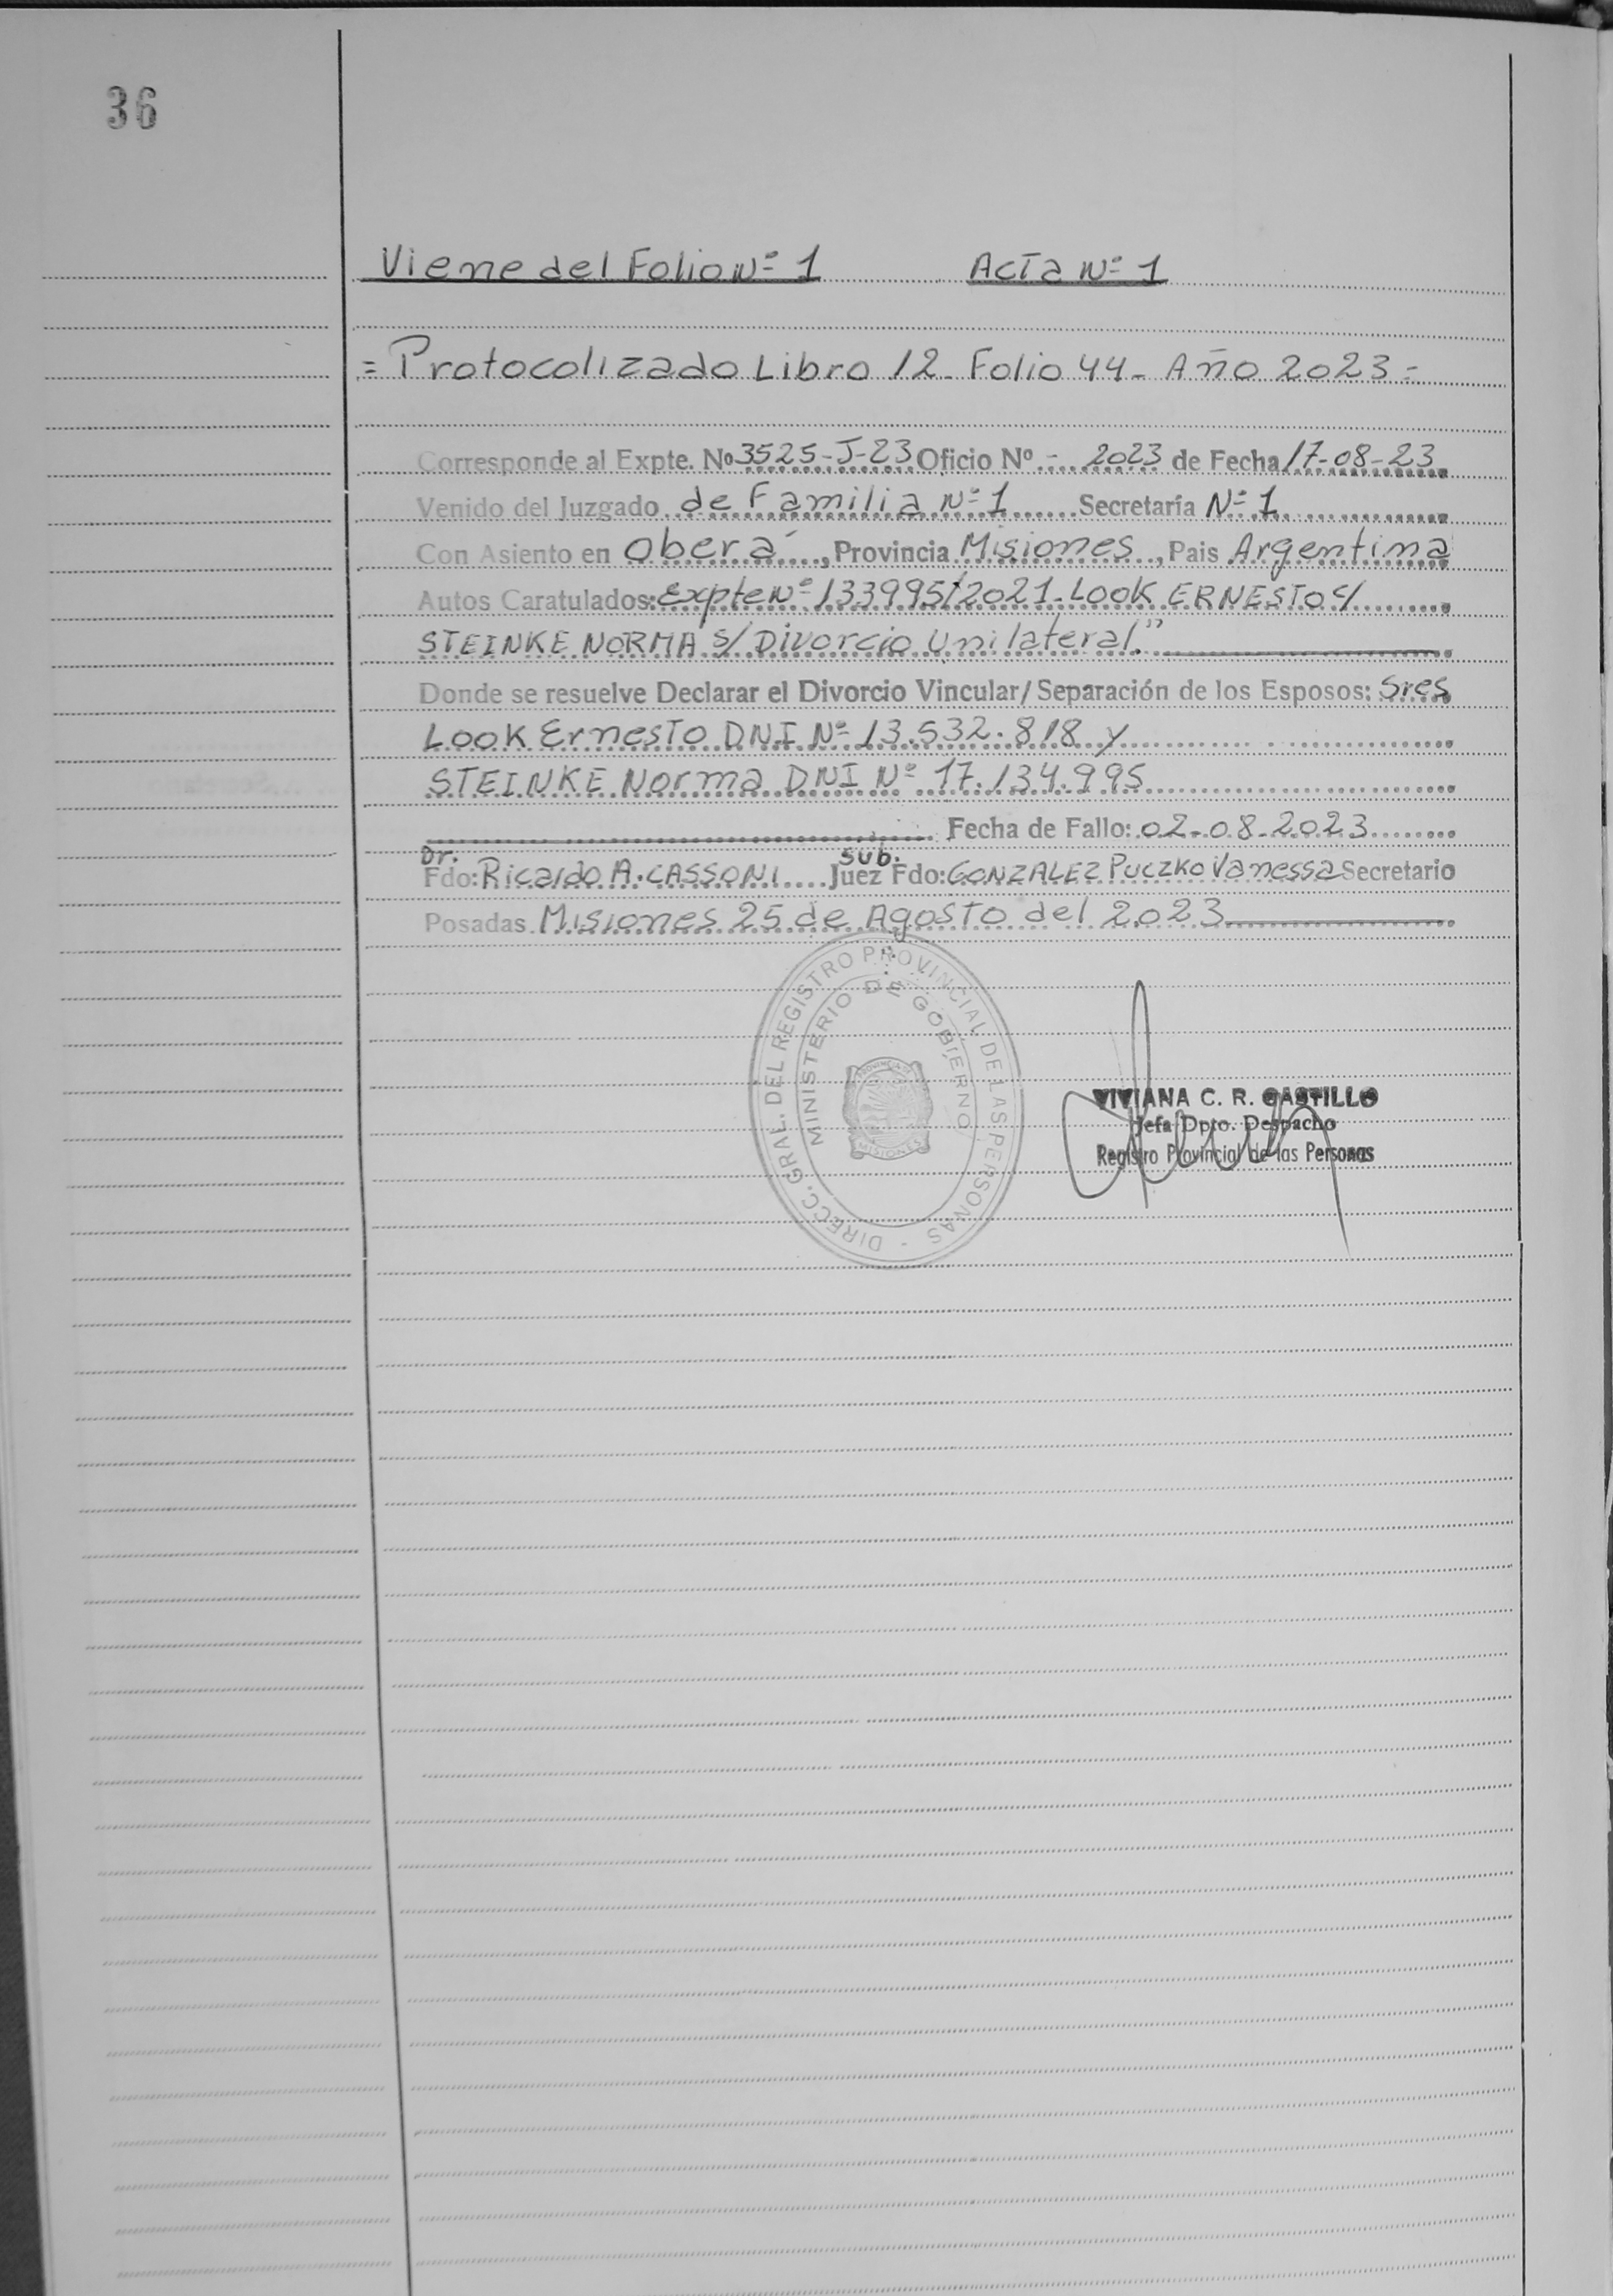 36
Viene del Folio Nº 1 Acta Nº 1
= Protocolizado Libro 12 - Folio 44 - Año 2023 =
Corresponde al Expte. Nº 3525-J-23 Oficio Nº - 2023 de Fecha 17-08-23
Venido del Juzgado de Familia Nº 1 Secretaría Nº 1
Con Asiento en Oberá, Provincia Misiones, Pais Argentina
Autos Caratulados: Expte Nº 133995/2021. LOOK ERNESTO c/
STEINKE NORMA s/ Divorcio Unilateral."
Donde se resuelve Declarar el Divorcio Vincular/Separación de los Esposos: Sres
LOOK Ernesto DNI Nº 13.532.818 y
STEINKE Norma DNI Nº 17.134.995
Fecha de Fallo: 02-08-2023
Dr. Sub.
Fdo: Ricardo A. CASSONI Juez Fdo: GONZALEZ PUCZKO Vanessa Secretario
Posadas Misiones 25 de Agosto del 2023
DIRECC. GRAL. DEL REGISTRO PROVINCIAL DE LAS PERSONAS -
MINISTERIO DE GOBIERNO
PROVINCIA DE
MISIONES
VIVIANA C. R. CASTILLO
Jefa Dpto. Despacho
Registro Provincial de las Personas